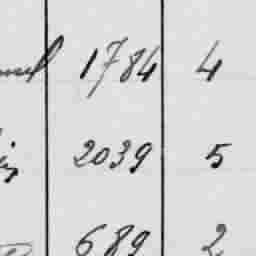 1784 4
2039 5
689 2